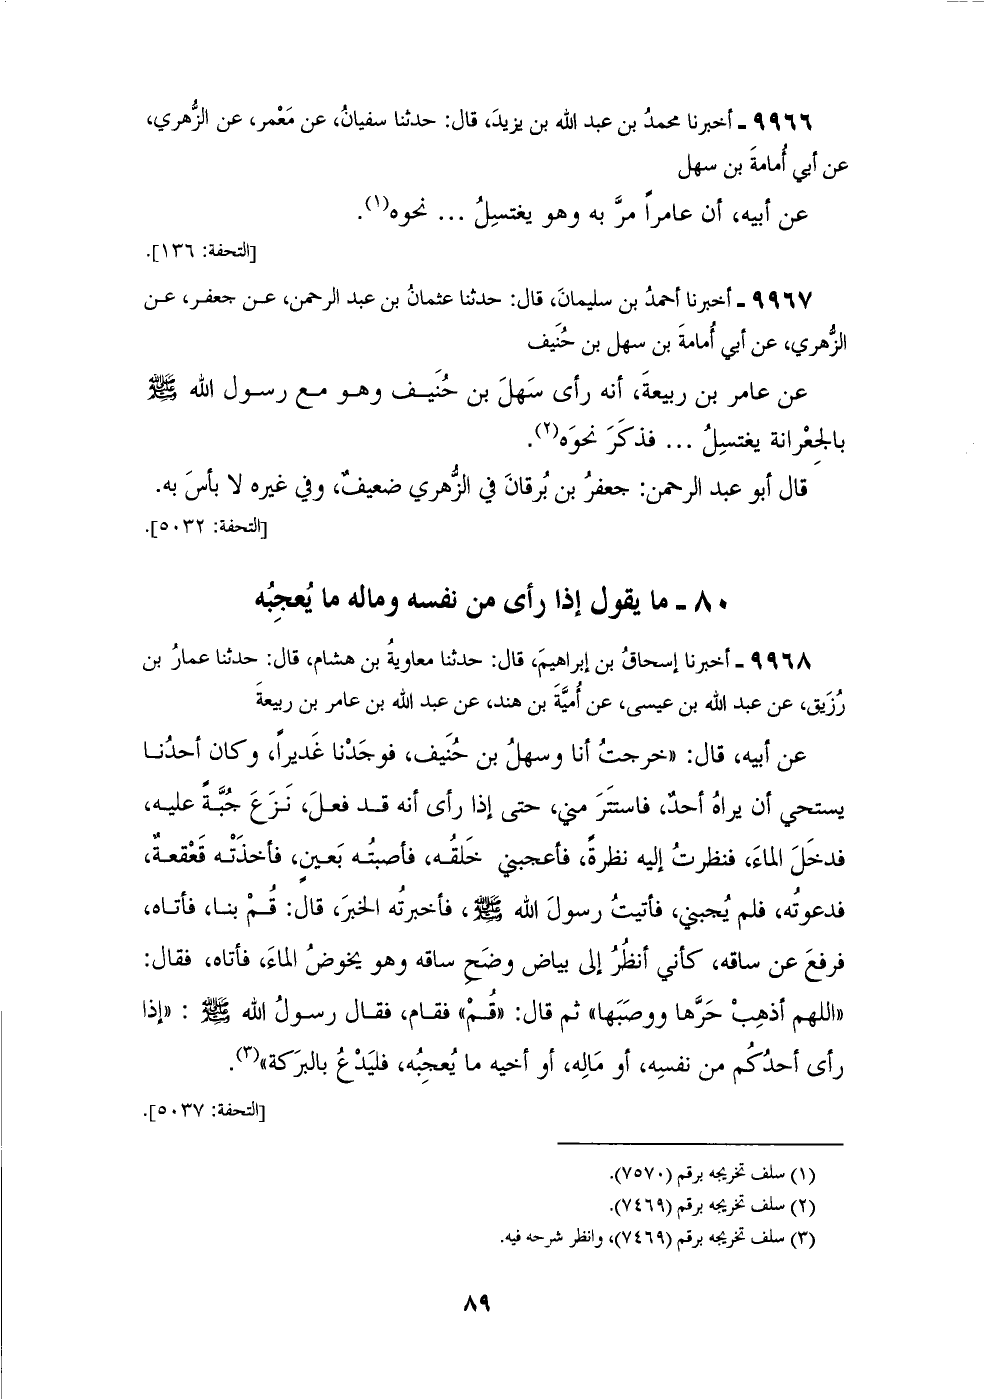 ٩٩٦٦ ـ أخبرنا محمدُ بن عبد الله بن يزيدَ، قال: حدثنا سفيانُ، عن مَعْمر، عن الزُّهري،
عن أبي أُمامةَ بن سهل
عن أبيه، أن عامراً مرَّ به وهو يغتسِلُ ... نحوه(١).
[التحفة: ١٣٦].
٩٩٦٧ ـ أخبرنا أحمدُ بن سليمانَ، قال: حدثنا عثمانُ بن عبد الرحمن، عن جعفر، عن
الزُّهري، عن أبي أُمامةَ بن سهل بن حُنَيف
عن عامر بن ربيعةَ، أنه رأى سَهلَ بن حُنَيف وهو مع رسول الله ﷺ
بالجِعْرانة يغتسِلُ ... فذكَرَ نحوَه(٢).
قال أبو عبد الرحمن: جعفرُ بن بُرقانَ في الزُّهري ضعيفٌ، وفي غيره لا بأسَ به.
[التحفة: ٥٠٣٢].
٨٠ ـ ما يقول إذا رأى من نفسه وماله ما يُعجِبُه
٩٩٦٨ ـ أخبرنا إسحاقُ بن إبراهيمَ، قال: حدثنا معاويةُ بن هشام، قال: حدثنا عمارُ بن
رُزَيق، عن عبد الله بن عيسى، عن أُميَّةَ بن هند، عن عبد الله بن عامر بن ربيعةَ
عن أبيه، قال: «خرجتُ أنا وسهلُ بن حُنَيف، فوجَدْنا غَديراً، وكان أحدُنا
يستحي أن يراهُ أحدٌ، فاستَتَرَ مني، حتى إذا رأى أنه قد فعلَ، نَزَعَ جُبَّةً عليه،
فدخَلَ الماءَ، فنظرتُ إليه نظرةً، فأعجبني خَلقُه، فأصبتُه بَعينٍ، فأخذَتْه قَعْقعةٌ،
فدعوتُه، فلم يُجبني، فأتيتُ رسولَ الله ﷺ، فأخبرتُه الخبرَ، قال: قُمْ بنا، فأتاه،
فرفعَ عن ساقه، كأني أنظُرُ إلى بياض وضَحِ ساقه وهو يخوضُ الماءَ، فأتاه، فقال:
«اللهم أذهِبْ حَرَّها ووصَبَها» ثم قال: «قُمْ» فقام، فقال رسولُ الله ﷺ : «إذا
رأى أحدُكُم من نفسِه، أو مَالِه، أو أخيه ما يُعجِبُه، فليَدْعُ بالبَركة»(٣).
[التحفة: ٥٠٣٧].
(١) سلف تخريجه برقم (٧٥٧٠).
(٢) سلف تخريجه برقم (٧٤٦٩).
(٣) سلف تخريجه برقم (٧٤٦٩)، وانظر شرحه فيه.
٨٩